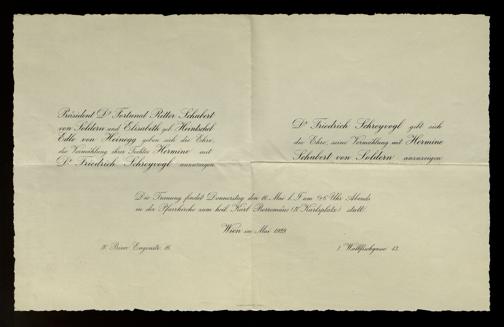 Präsident Dr Fortunat Ritter Schubert
von Soldern und Elisabeth geb. Heintschel
Edle von Heinegg geben sich die Ehre,
die Vermählung ihrer Tochter Hermine mit
Dr Friedrich Schreyvogl anzuzeigen.
Dr Friedrich Schreyvogl gibt sich
die Ehre, seine Vermählung mit Hermine
Schubert von Soldern anzuzeigen.
Die Trauung findet Donnerstag den 16. Mai l. J. um Uhr Abends
in der Pfarrkirche zum heil. Karl Borromäus (IV. Karlsplatz) statt.
Wien im Mai 1929.
Prinz Eugenstr. 16.
I. Wallfischgasse 13.